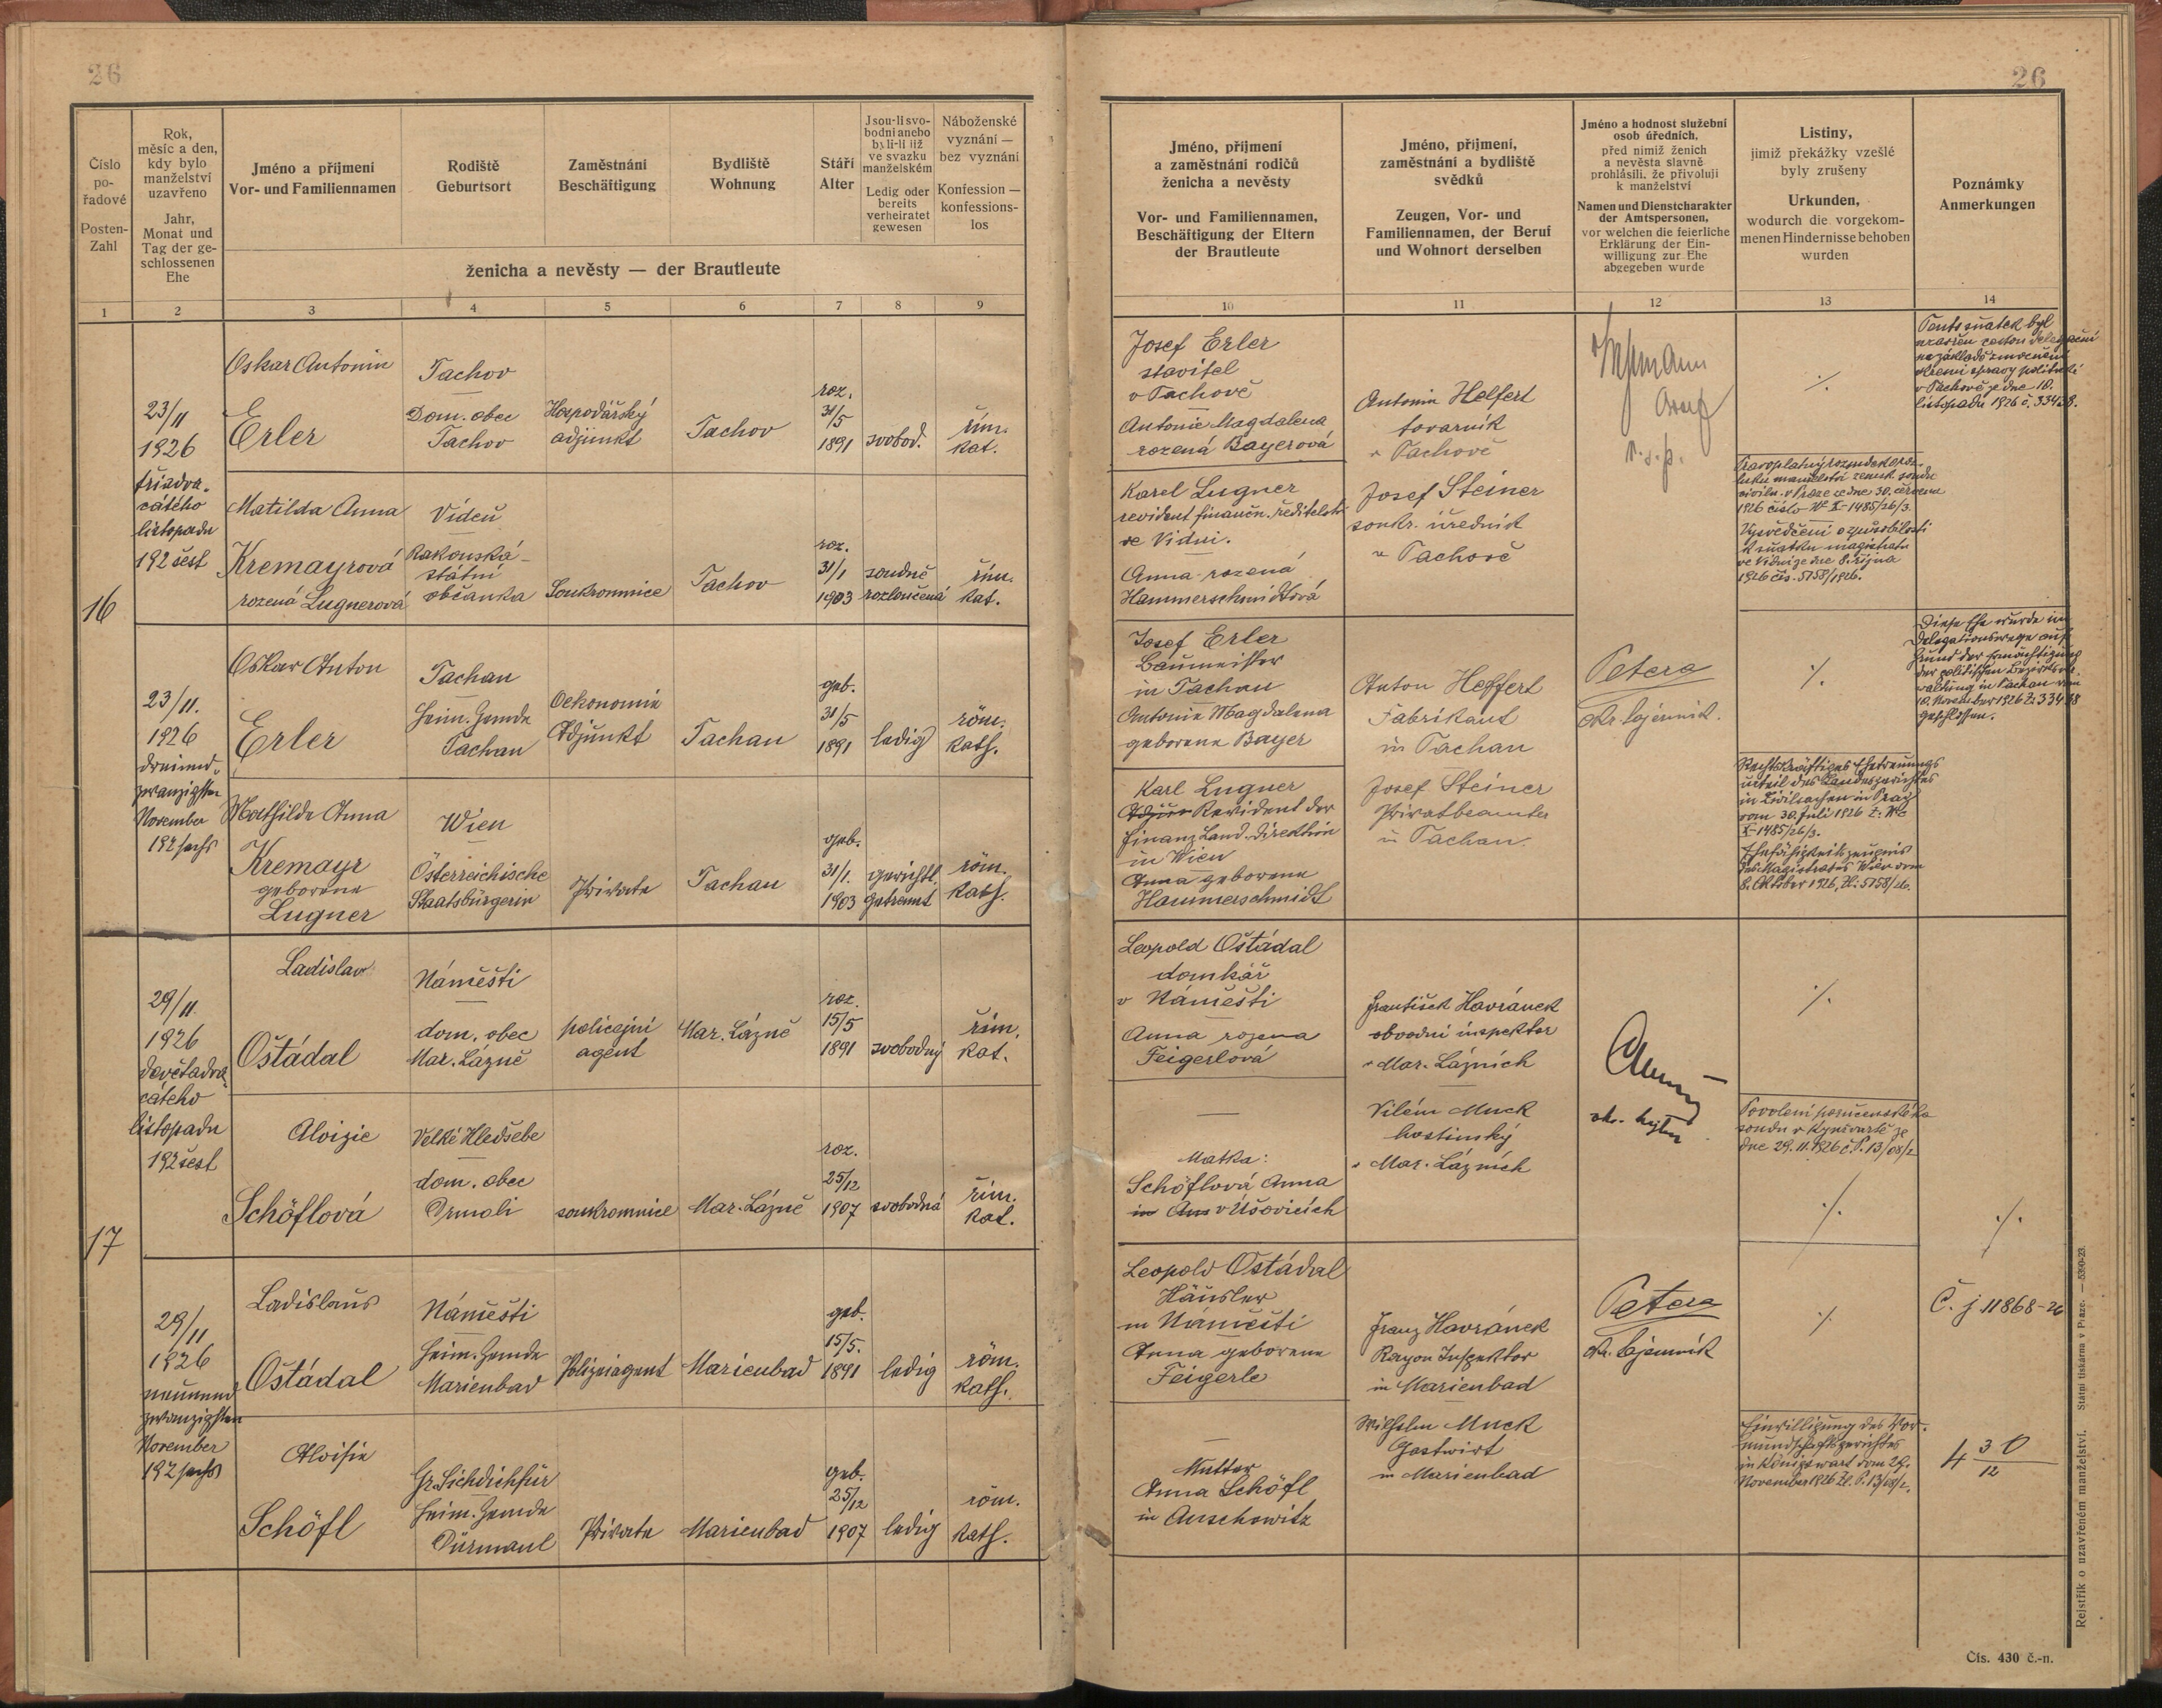 26
26
Číslo
po-
řadové
Posten-
Zahl
Rok,
měsíc a den,
kdy bylo
manželství
uzavřeno
Jahr,
Monat und
Tag der ge-
schlossenen
Ehe
Jméno a příjmení
Vor- und Familiennamen
Rodiště
Geburtsort
Zaměstnání
Beschäftigung
Bydliště
Wohnung
Stáří
Alter
Jsou-li svo-
bodni anebo
byli-li již
ve svazku
manželském
Ledig oder
bereits
verheiratet
gewesen
Náboženské
vyznání —
bez vyznání
Konfession —
konfessions-
los
ženicha a nevěsty — der Brautleute
1 2 3 4 5 6 7 8 9
Jméno, příjmení
a zaměstnání rodičů
ženicha a nevěsty
Vor- und Familiennamen,
Beschäftigung der Eltern
der Brautleute
Jméno, příjmení,
zaměstnání a bydliště
svědků
Zeugen, Vor- und
Familiennamen, der Beruf
und Wohnort derselben
Jméno a hodnost služební
osob úředních,
před nimiž ženich
a nevěsta slavně
prohlásili, že přivolují
k manželství
Namen und Dienstcharakter
der Amtspersonen,
vor welchen die feierliche
Erklärung der Ein-
willigung zur Ehe
abgegeben wurde
Listiny,
jimiž překážky vzešlé
byly zrušeny
Urkunden,
wodurch die vorgekom-
menen Hindernisse behoben
wurden
Poznámky
Anmerkungen
10 11 12 13 14
16
23/11
1926
třiadva-
cátého
listopadu
192 šest
Oskar Antonín
Erler
Tachov
Dom. obec
Tachov
Hospodářský
adjunkt
Tachov
roz.
31/5
1891
svobod.
řím.
kat.
Josef Erler
stavitel
v Tachově
Antonie Magdalena
rozená Bayerová
Antonín Helfert
továrník
v Tachově
·/.
Tento sňatek byl
uzavřen cestou delegační
na základě zmocnění
okresní správy politické
v Tachově ze dne 10.
listopadu 1926 č. 33438.
Matilda Anna
Kremayrová
rozená Lugnerová
Vídeň
Rakouská
státní
občanka
Soukromnice
Tachov
roz.
31/1
1903
soudně
rozloučená
řím.
kat.
Karel Lugner
revident finančn. ředitelství
ve Vídni.
Anna rozená
Hammerschmidtová
Josef Steiner
soukr. úředník
v Tachově
Pravoplatný rozsudek o roz-
luku manželství zemsk. soudu
civiln. v Praze ze dne 30. července
1926 číslo X-1485/26/3.
Vysvědčení o způsobilosti
k sňatku magistratu
ve Vídni ze dne 8. října
1926 čís. 5758/1926.
23/11.
1926
dreiund-
zwanzigsten
November
192 sechs
Oskar Anton
Erler
Tachau
Heim. Gemde
Tachau
Oekonomie
Adjunkt
Tachau
geb.
31/5
1891
ledig
röm.
kath.
Josef Erler
Baumeister
in Tachau
Antonie Magdalena
geborene Bayer
Anton Helfert
Fabrikant
in Tachau
Petera
okr. tajemník.
·/.
Diese Ehe wurde im
Delegationswege auf
Grund der Ermächtigung
der politischen Bezirksver-
waltung in Tachau vom
10. November 1926 Z. 33438
geschlossen.
Mathilde Anna
Kremayr
geborene
Lugner
Wien
Österreichische
Staatsbürgerin
Private
Tachau
geb.
31/1.
1903
gerichtl.
getrennt
röm.
kath.
Karl Lugner
Revident der
Finanz Land. direktion
in Wien
Anna geborene
Hammerschmidt
Josef Steiner
Privatbeamter
in Tachau.
Rechtskräftiges Ehetrennungs
urteil des Landesgerichtes
in Zivilsachen in Prag
vom 30. Juli 1926 Z.
X-1485/26/3.
Ehefähigkeitszeugnis
des Magistrates Wien vom
8. Oktober 1926, Zl: 5758/26.
17
29/11.
1926
devětadva-
cátého
listopadu
192 šest
Ladislav
Oštádal
Náměšti
dom. obec
Mar. Lázně
policejní
agent
Mar. Lázně
roz.
15/5
1891
svobodný
řím.
kat.
Leopold Oštádal
domkář
v Náměšti
Anna rozena
Feigerlová
František Havránek
obvodní inspektor
v Mar. Lázních
·/.
Aloisie
Schöflová
Velké Hledsebe
dom. obec
Drmoli
soukromnice
Mar. Lázně
roz.
25/12
1907
svobodná
řím.
kat.
—
Matka:
Schöflová Anna
in Aus v Úšovicích
Vilém Muck
hostinský
v Mar. Lázních
Povolení poručenského
soudu v Kynžvartě ze
dne 29.11.1926 č. P. 13/08/2
·/.
·/.
29/11
1926
neunund
zwanzigsten
November
192 sechs
Ladislaus
Oštádal
Náměšti
Heim. Gemde
Marienbad
Polizeiagent
Marienbad
geb.
15/5.
1891
ledig
röm.
kath.
Leopold Oštádal
Häusler
in Náměšti
Anna geborene
Feigerle
Franz Havránek
Rayon Inspektor
in Marienbad
Petera
okr. tajemník
·/.
Č. j 11868-26
Aloisie
Schöfl
Gr. Sichdichfür
Heim. Gemde
Dürmaul
Private
Marienbad
geb.
25/12
1907
ledig
röm.
kath.
—
Mutter
Anna Schöfl
in Auschowitz
Wilhelm Muck
Gastwirt
in Marienbad
Einwilligung des Vor-
mundschaftsgerichtes
in Königswart vom 29.
November 1926 Zl. P. 13/08/2.
4 30/12
Rejstřík o uzavřeném manželství. Státní tiskárna v Praze. —5390-23.
Čís. 430 č.-n.